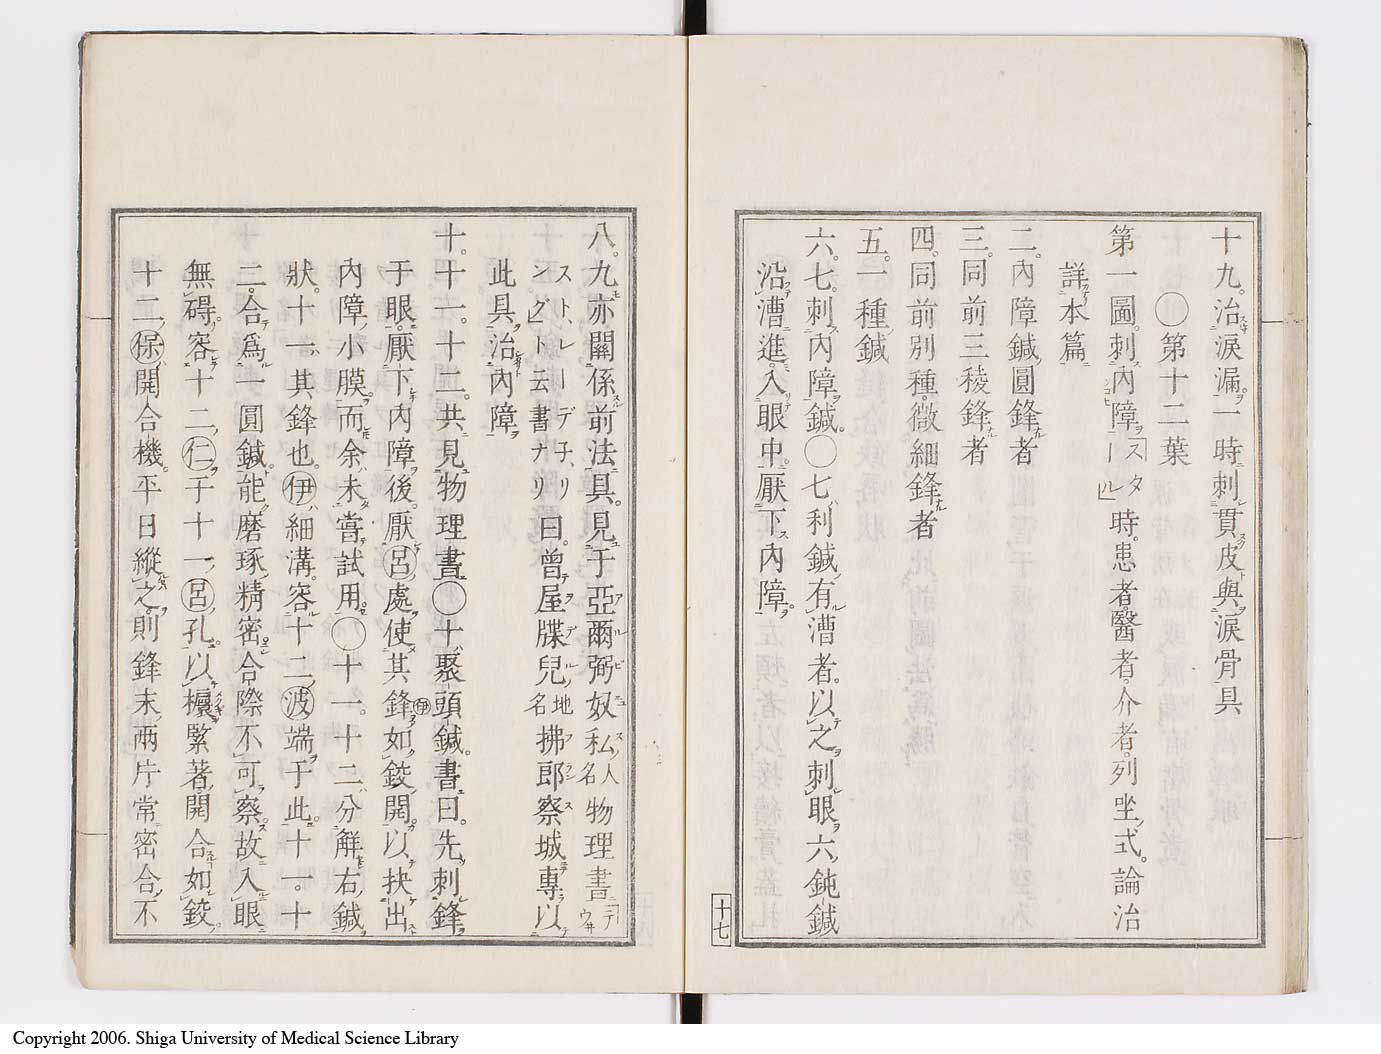 十九。治涙漏一時刺貫皮與涙骨具
〇第十二葉
第一圖。刺内障 時。患者。醫者。介者。列坐式。論治
詳本篇
二。内障鍼圓鋒者
三。同前三稜鋒者
四。同前別種。微細鋒者
五。一種鍼
六。七。刺内障鍼。〇七利鍼有漕者。以之刺眼。六鈍鍼
沿漕進入眼中。厭下内障。
十七
八。九亦關係前法具。見于亞爾弼奴私人名物理書
ストレーデ子リングト云書ナリ曰。曾屋牒兒地名拂郎察城專以
此具治内障
十。十一。十二。共見物理書〇十聚頭鍼。書曰。先刺鋒
于眼。厭下内障後。厭呂處。使其鋒伊如鋏開。以抉出
内障小膜。而余未嘗試用。〇十一。十二分解右鍼
狀。十一其鋒也。伊細溝。容十二波端于此。十一。十
二。合爲一圓鍼。能磨琢精密。合際不可察。故入眼
無碍。容十二仁于十一呂孔。以欀緊著。開合如鋏。
十二保開合機。平日縱之。則鋒末兩片常密合。不
Copyright 2006. Shiga University of Medical Science Library